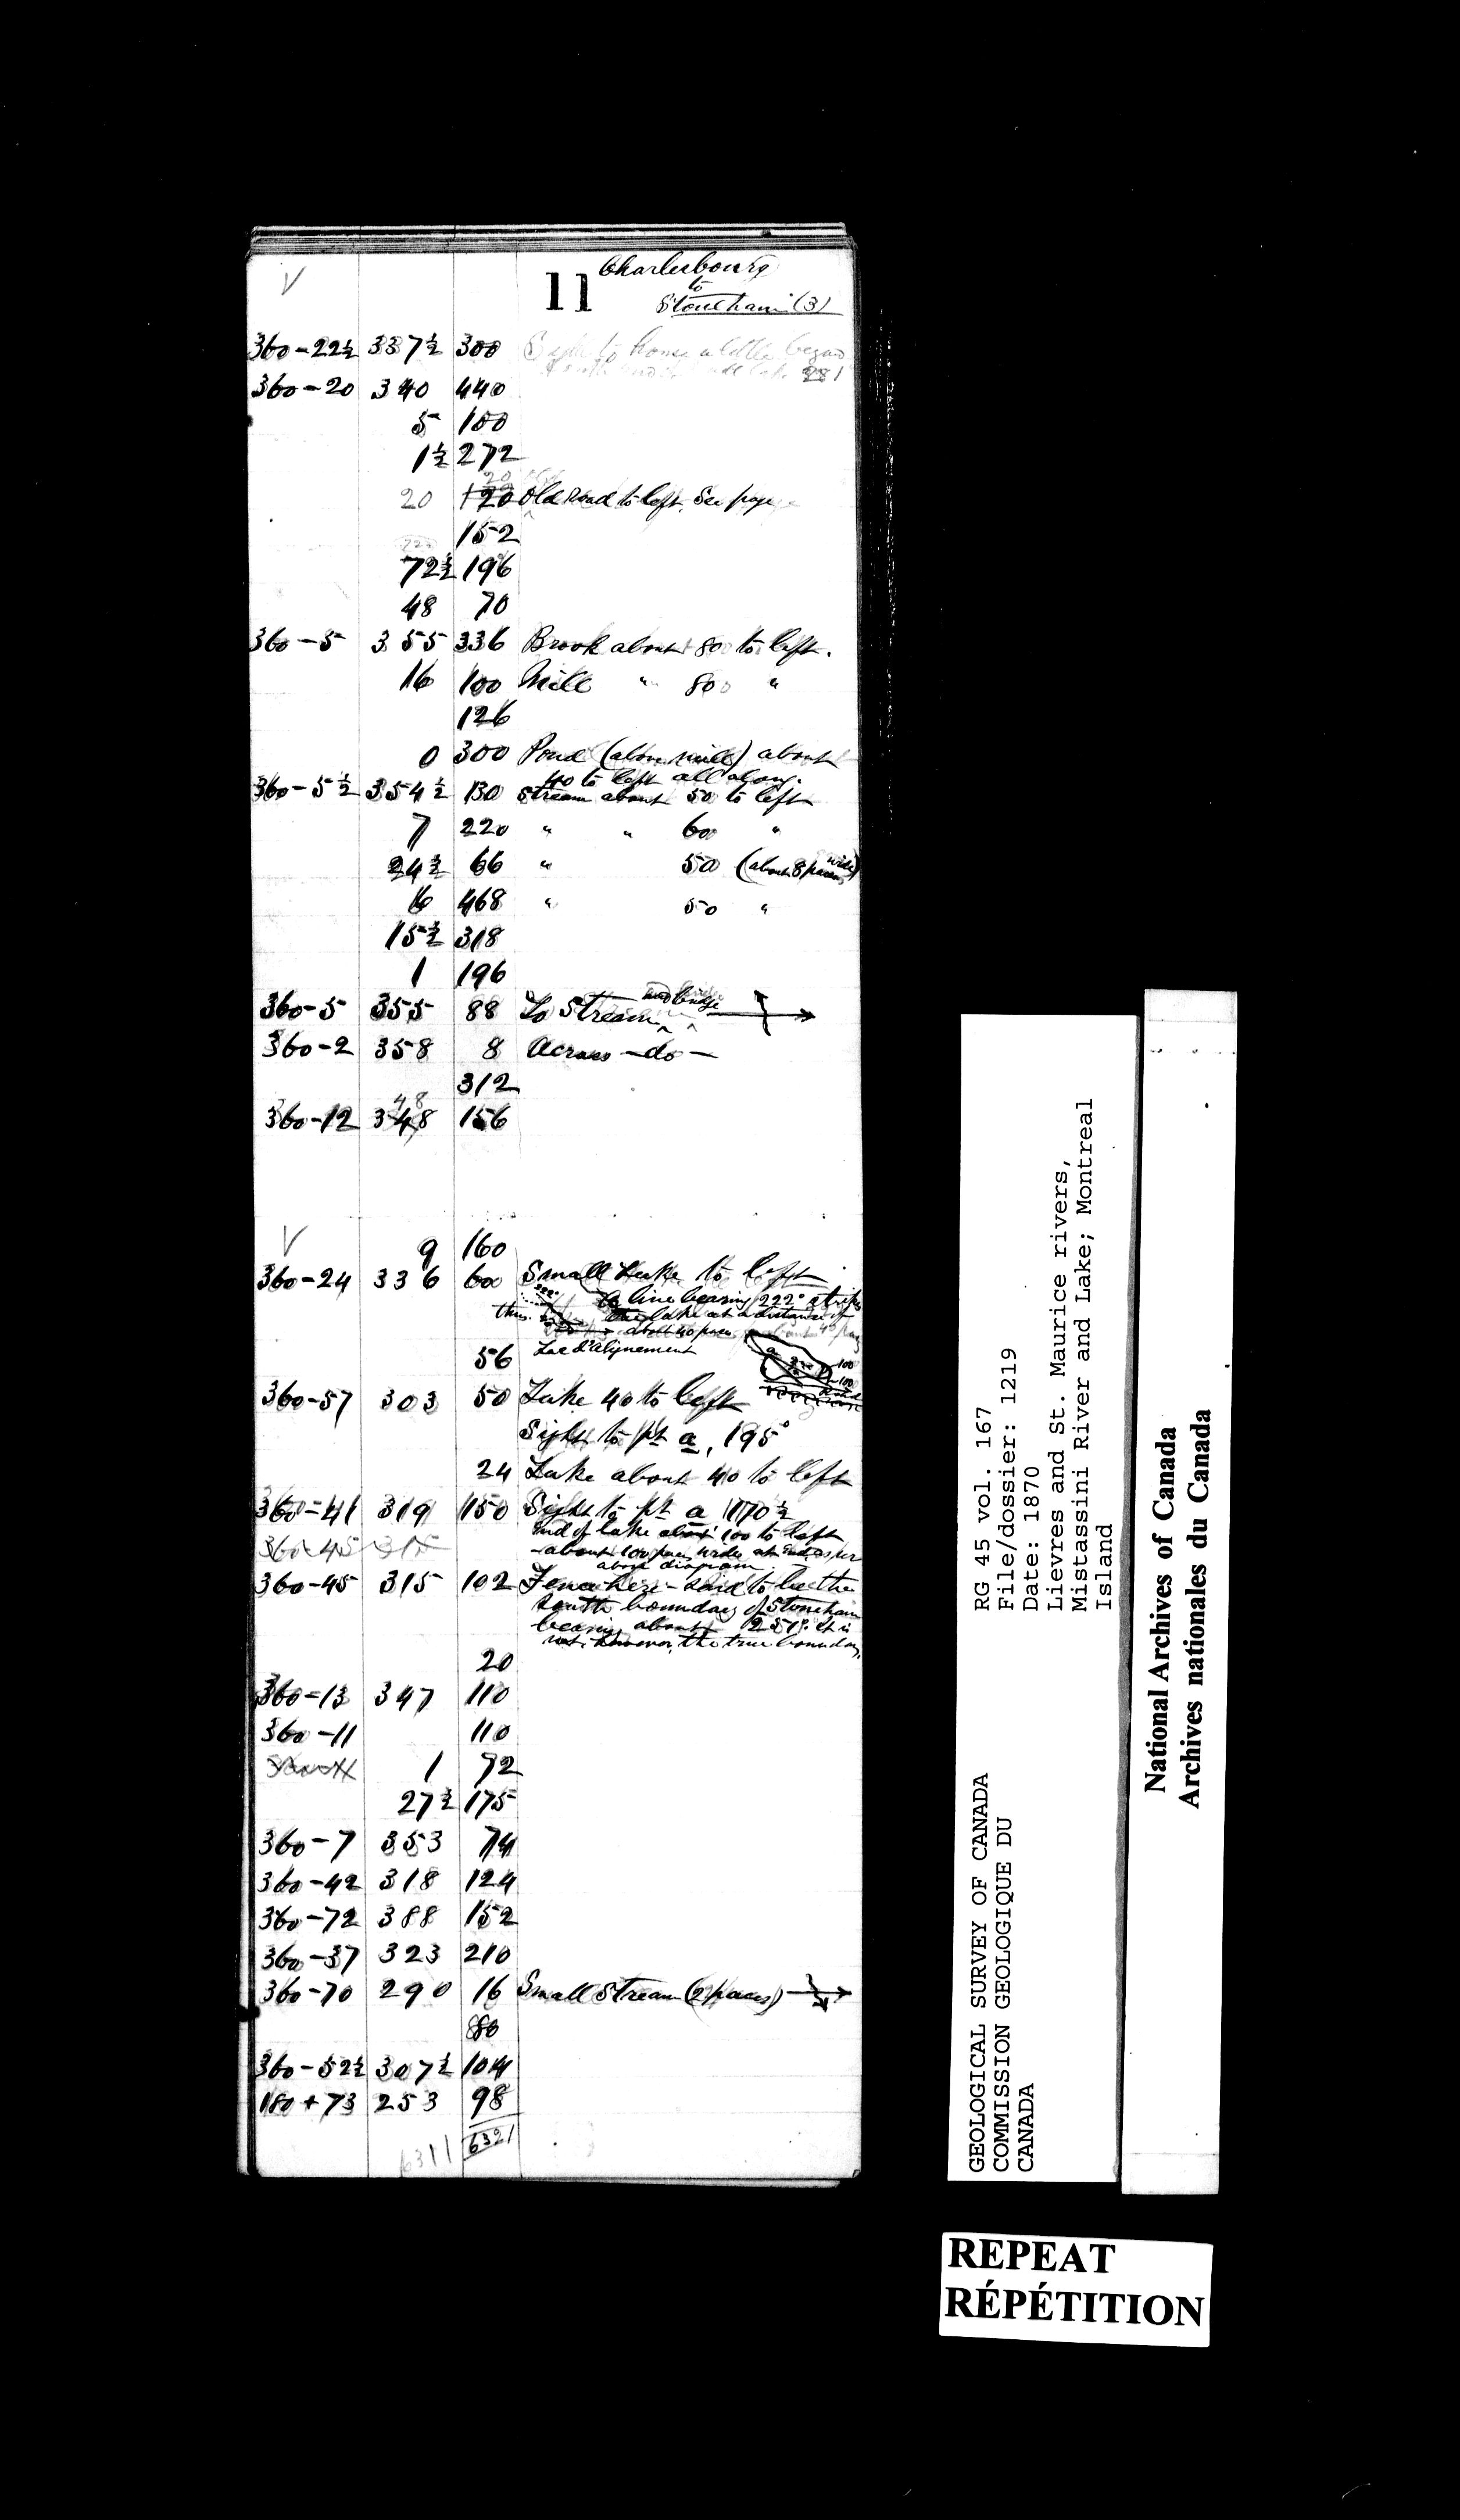 Charlesbourg
11 to
Stoneham (3)
360-22½ 337½ 300 Sight to house a little beyond
281
360-20 340 440
5 100
1½ 272
20
20 120 Old Road to left. See page
152
72½ 196
48 70
360-5 355 336 Brook about 80 to left.
16 100 Mill " 80 "
126
0 300 Pond (above mill) about
40 to left all along.
360-5½ 354½ 130 Stream about 50 to left
7 220 " " 60 "
24½ 66 " 50 (about 8 paces wide)
6 468 " 50 "
15½ 318
1 196
360-5 355 88 To Stream and bridge
360-2 358 8 Across -do-
312
48
360-12 348 156
9 160
360-24 336 60 Small Lake to left
222° A line bearing 222° strikes
thus. the lake at a distance of
about 40 paces
56 Lac d'alignement
a 100
100
360-57 303 50 Lake 40 to left
Sight to pt a, 195°
24 Lake about 40 to left
360-41 319 150 Sight to pt a 170½
End of lake about 100 to left
about 100 paces wide at End as per
above diagram.
360-45 315
360-45 315 102 Fence here - said to be the
south boundary of Stoneham
bearing about 251°. It is
not, however, the true boundary.
20
360-13 347 110
360-11 110
1 72
27½ 175
360-7 353 74
360-42 318 124
360-72 388 152
360-37 323 210
360-70 290 16 Small Stream (2 paces)
80
360-52½ 307½ 104
180+73 253 98
6311 6321
GEOLOGICAL SURVEY OF CANADA
COMMISSION GEOLOGIQUE DU
CANADA
RG 45 vol. 167
File/dossier: 1219
Date: 1870
Lievres and St. Maurice rivers,
Mistassini River and Lake; Montreal
Island
National Archives of Canada
Archives nationales du Canada
REPEAT
RÉPÉTITION